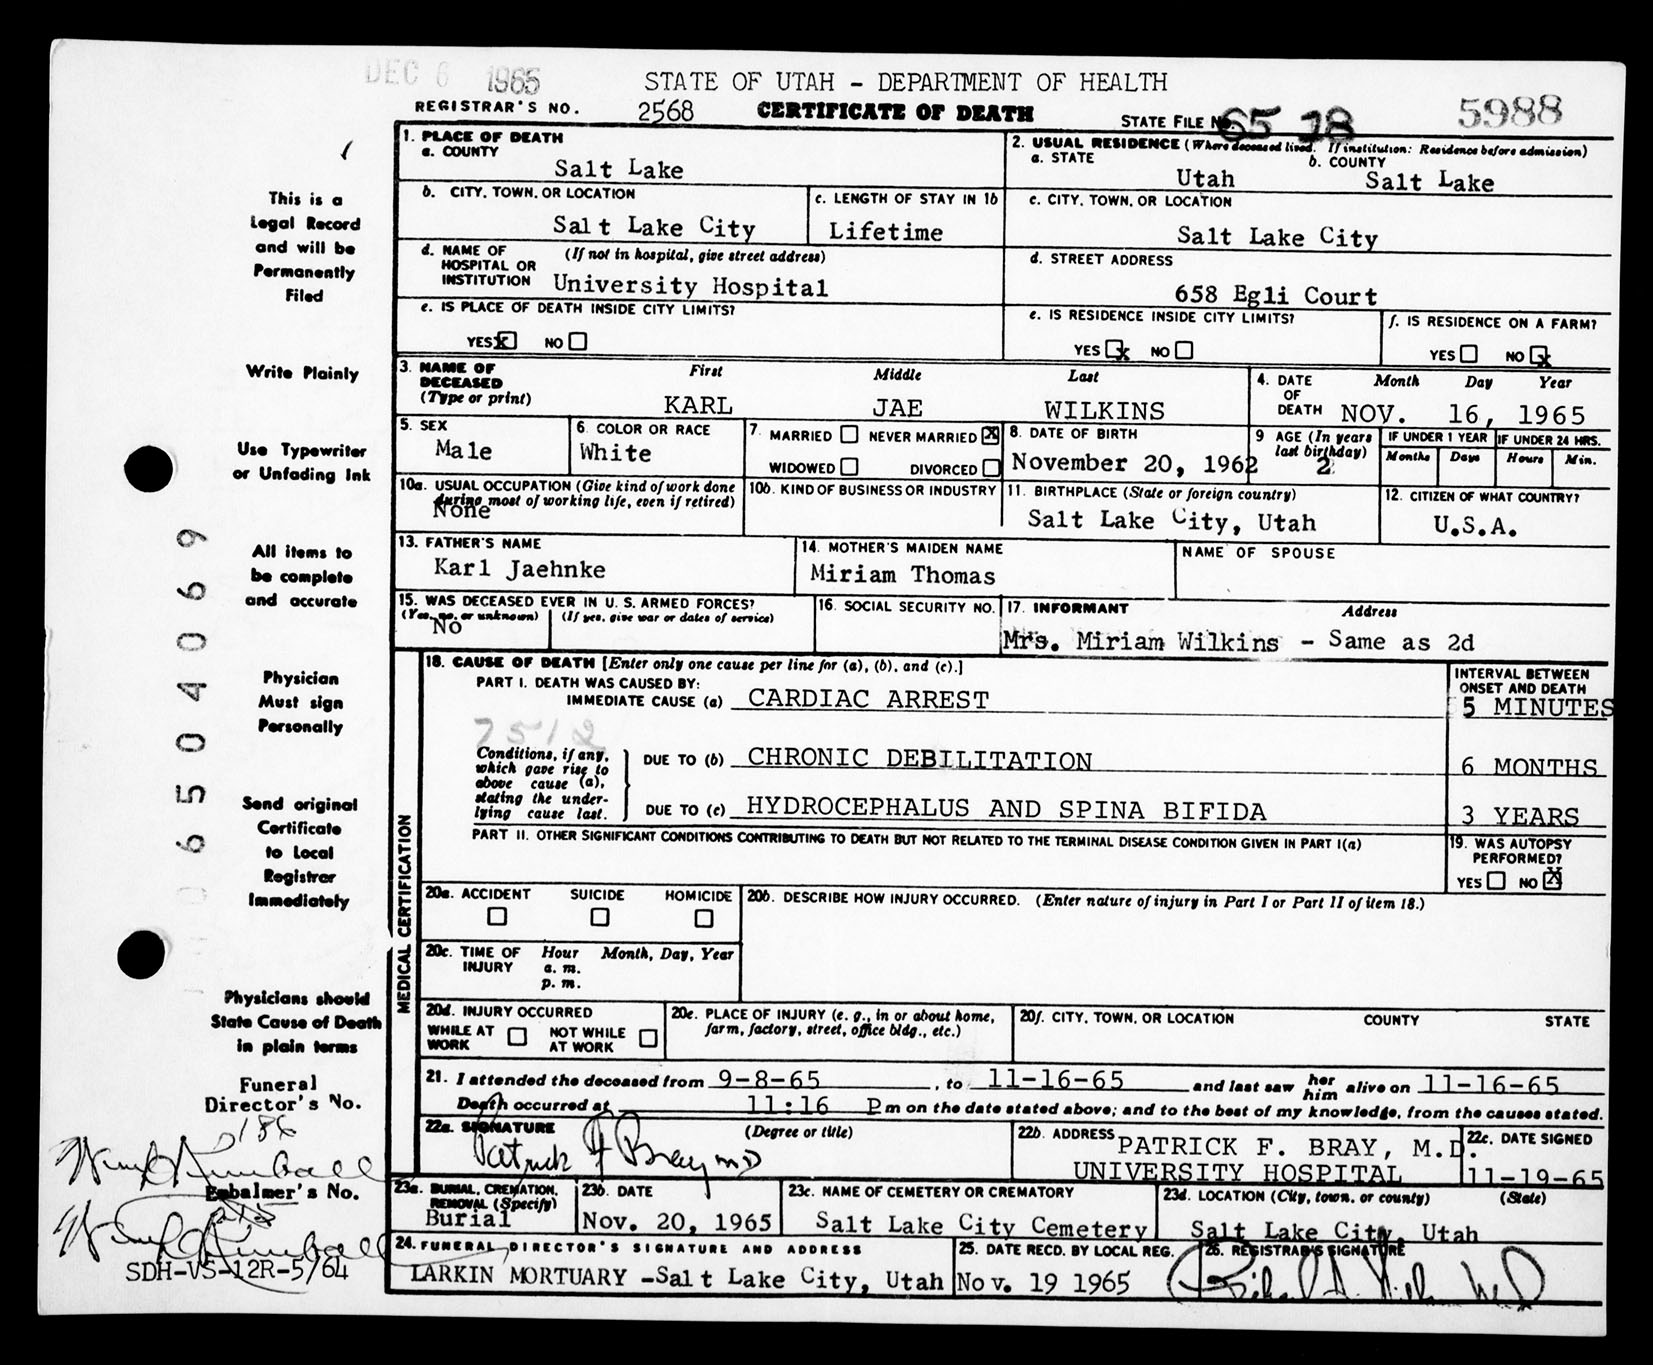 DEC 6 1965
STATE OF UTAH - DEPARTMENT OF HEALTH
REGISTRAR'S NO. 2568 CERTIFICATE OF DEATH STATE FILE NO. 65 18 5988
This is a
Legal Record
and will be
Permanently
Filed
Write Plainly
Use Typewriter
or Unfading Ink
All items to
be complete
and accurate
Physician
Must sign
Personally
Send original
Certificate
to Local
Registrar
Immediately
Physicians should
State Cause of Death
in plain terms
Funeral
Director's No.
186
Embalmer's No.
SDH-VS-12R-5/64
6504069
1. PLACE OF DEATH
a. COUNTY
Salt Lake
2. USUAL RESIDENCE (Where deceased lived. If institution: Residence before admission)
a. STATE b. COUNTY
Utah Salt Lake
b. CITY, TOWN, OR LOCATION
Salt Lake City
c. LENGTH OF STAY IN 1b
Lifetime
c. CITY, TOWN, OR LOCATION
Salt Lake City
d. NAME OF HOSPITAL OR INSTITUTION (If not in hospital, give street address)
University Hospital
d. STREET ADDRESS
658 Egli Court
e. IS PLACE OF DEATH INSIDE CITY LIMITS?
YES X NO
e. IS RESIDENCE INSIDE CITY LIMITS?
YES X NO
f. IS RESIDENCE ON A FARM?
YES NO X
3. NAME OF DECEASED (Type or print) First Middle Last
KARL JAE WILKINS
4. DATE OF DEATH Month Day Year
NOV. 16, 1965
5. SEX
Male
6. COLOR OR RACE
White
7. MARRIED NEVER MARRIED X
WIDOWED DIVORCED
8. DATE OF BIRTH
November 20, 1962
9 AGE (In years last birthday)
2
IF UNDER 1 YEAR IF UNDER 24 HRS.
Months Days Hours Min.
10a. USUAL OCCUPATION (Give kind of work done during most of working life, even if retired)
None
10b. KIND OF BUSINESS OR INDUSTRY
11. BIRTHPLACE (State or foreign country)
Salt Lake City, Utah
12. CITIZEN OF WHAT COUNTRY?
U.S.A.
13. FATHER'S NAME
Karl Jaehnke
14. MOTHER'S MAIDEN NAME
Miriam Thomas
NAME OF SPOUSE
15. WAS DECEASED EVER IN U. S. ARMED FORCES?
(Yes, no, or unknown) (If yes, give war or dates of service)
No
16. SOCIAL SECURITY NO.
17. INFORMANT Address
Mrs. Miriam Wilkins - Same as 2d
MEDICAL CERTIFICATION
18. CAUSE OF DEATH [Enter only one cause per line for (a), (b), and (c).]
PART I. DEATH WAS CAUSED BY:
IMMEDIATE CAUSE (a) CARDIAC ARREST
INTERVAL BETWEEN ONSET AND DEATH
5 MINUTES
7512
Conditions, if any, which gave rise to above cause (a), stating the underlying cause last.
DUE TO (b) CHRONIC DEBILITATION
6 MONTHS
DUE TO (c) HYDROCEPHALUS AND SPINA BIFIDA
3 YEARS
PART II. OTHER SIGNIFICANT CONDITIONS CONTRIBUTING TO DEATH BUT NOT RELATED TO THE TERMINAL DISEASE CONDITION GIVEN IN PART I(a)
19. WAS AUTOPSY PERFORMED?
YES NO X
20a. ACCIDENT SUICIDE HOMICIDE
20b. DESCRIBE HOW INJURY OCCURRED. (Enter nature of injury in Part I or Part II of item 18.)
20c. TIME OF INJURY Hour Month, Day, Year
a. m.
p. m.
20d. INJURY OCCURRED
WHILE AT WORK NOT WHILE AT WORK
20e. PLACE OF INJURY (e. g., in or about home, farm, factory, street, office bldg., etc.)
20f. CITY, TOWN, OR LOCATION COUNTY STATE
21. I attended the deceased from 9-8-65, to 11-16-65 and last saw her him alive on 11-16-65
Death occurred at 11:16 P m on the date stated above; and to the best of my knowledge, from the causes stated.
22a. SIGNATURE (Degree or title)
Patrick F Bray MD
22b. ADDRESS PATRICK F. BRAY, M.D.
UNIVERSITY HOSPITAL
22c. DATE SIGNED
11-19-65
23a. BURIAL, CREMATION, REMOVAL (Specify)
Burial
23b. DATE
Nov. 20, 1965
23c. NAME OF CEMETERY OR CREMATORY
Salt Lake City Cemetery
23d. LOCATION (City, town, or county) (State)
Salt Lake City, Utah
24. FUNERAL DIRECTOR'S SIGNATURE AND ADDRESS
LARKIN MORTUARY -Salt Lake City, Utah
25. DATE RECD. BY LOCAL REG.
Nov. 19 1965
26. REGISTRAR'S SIGNATURE